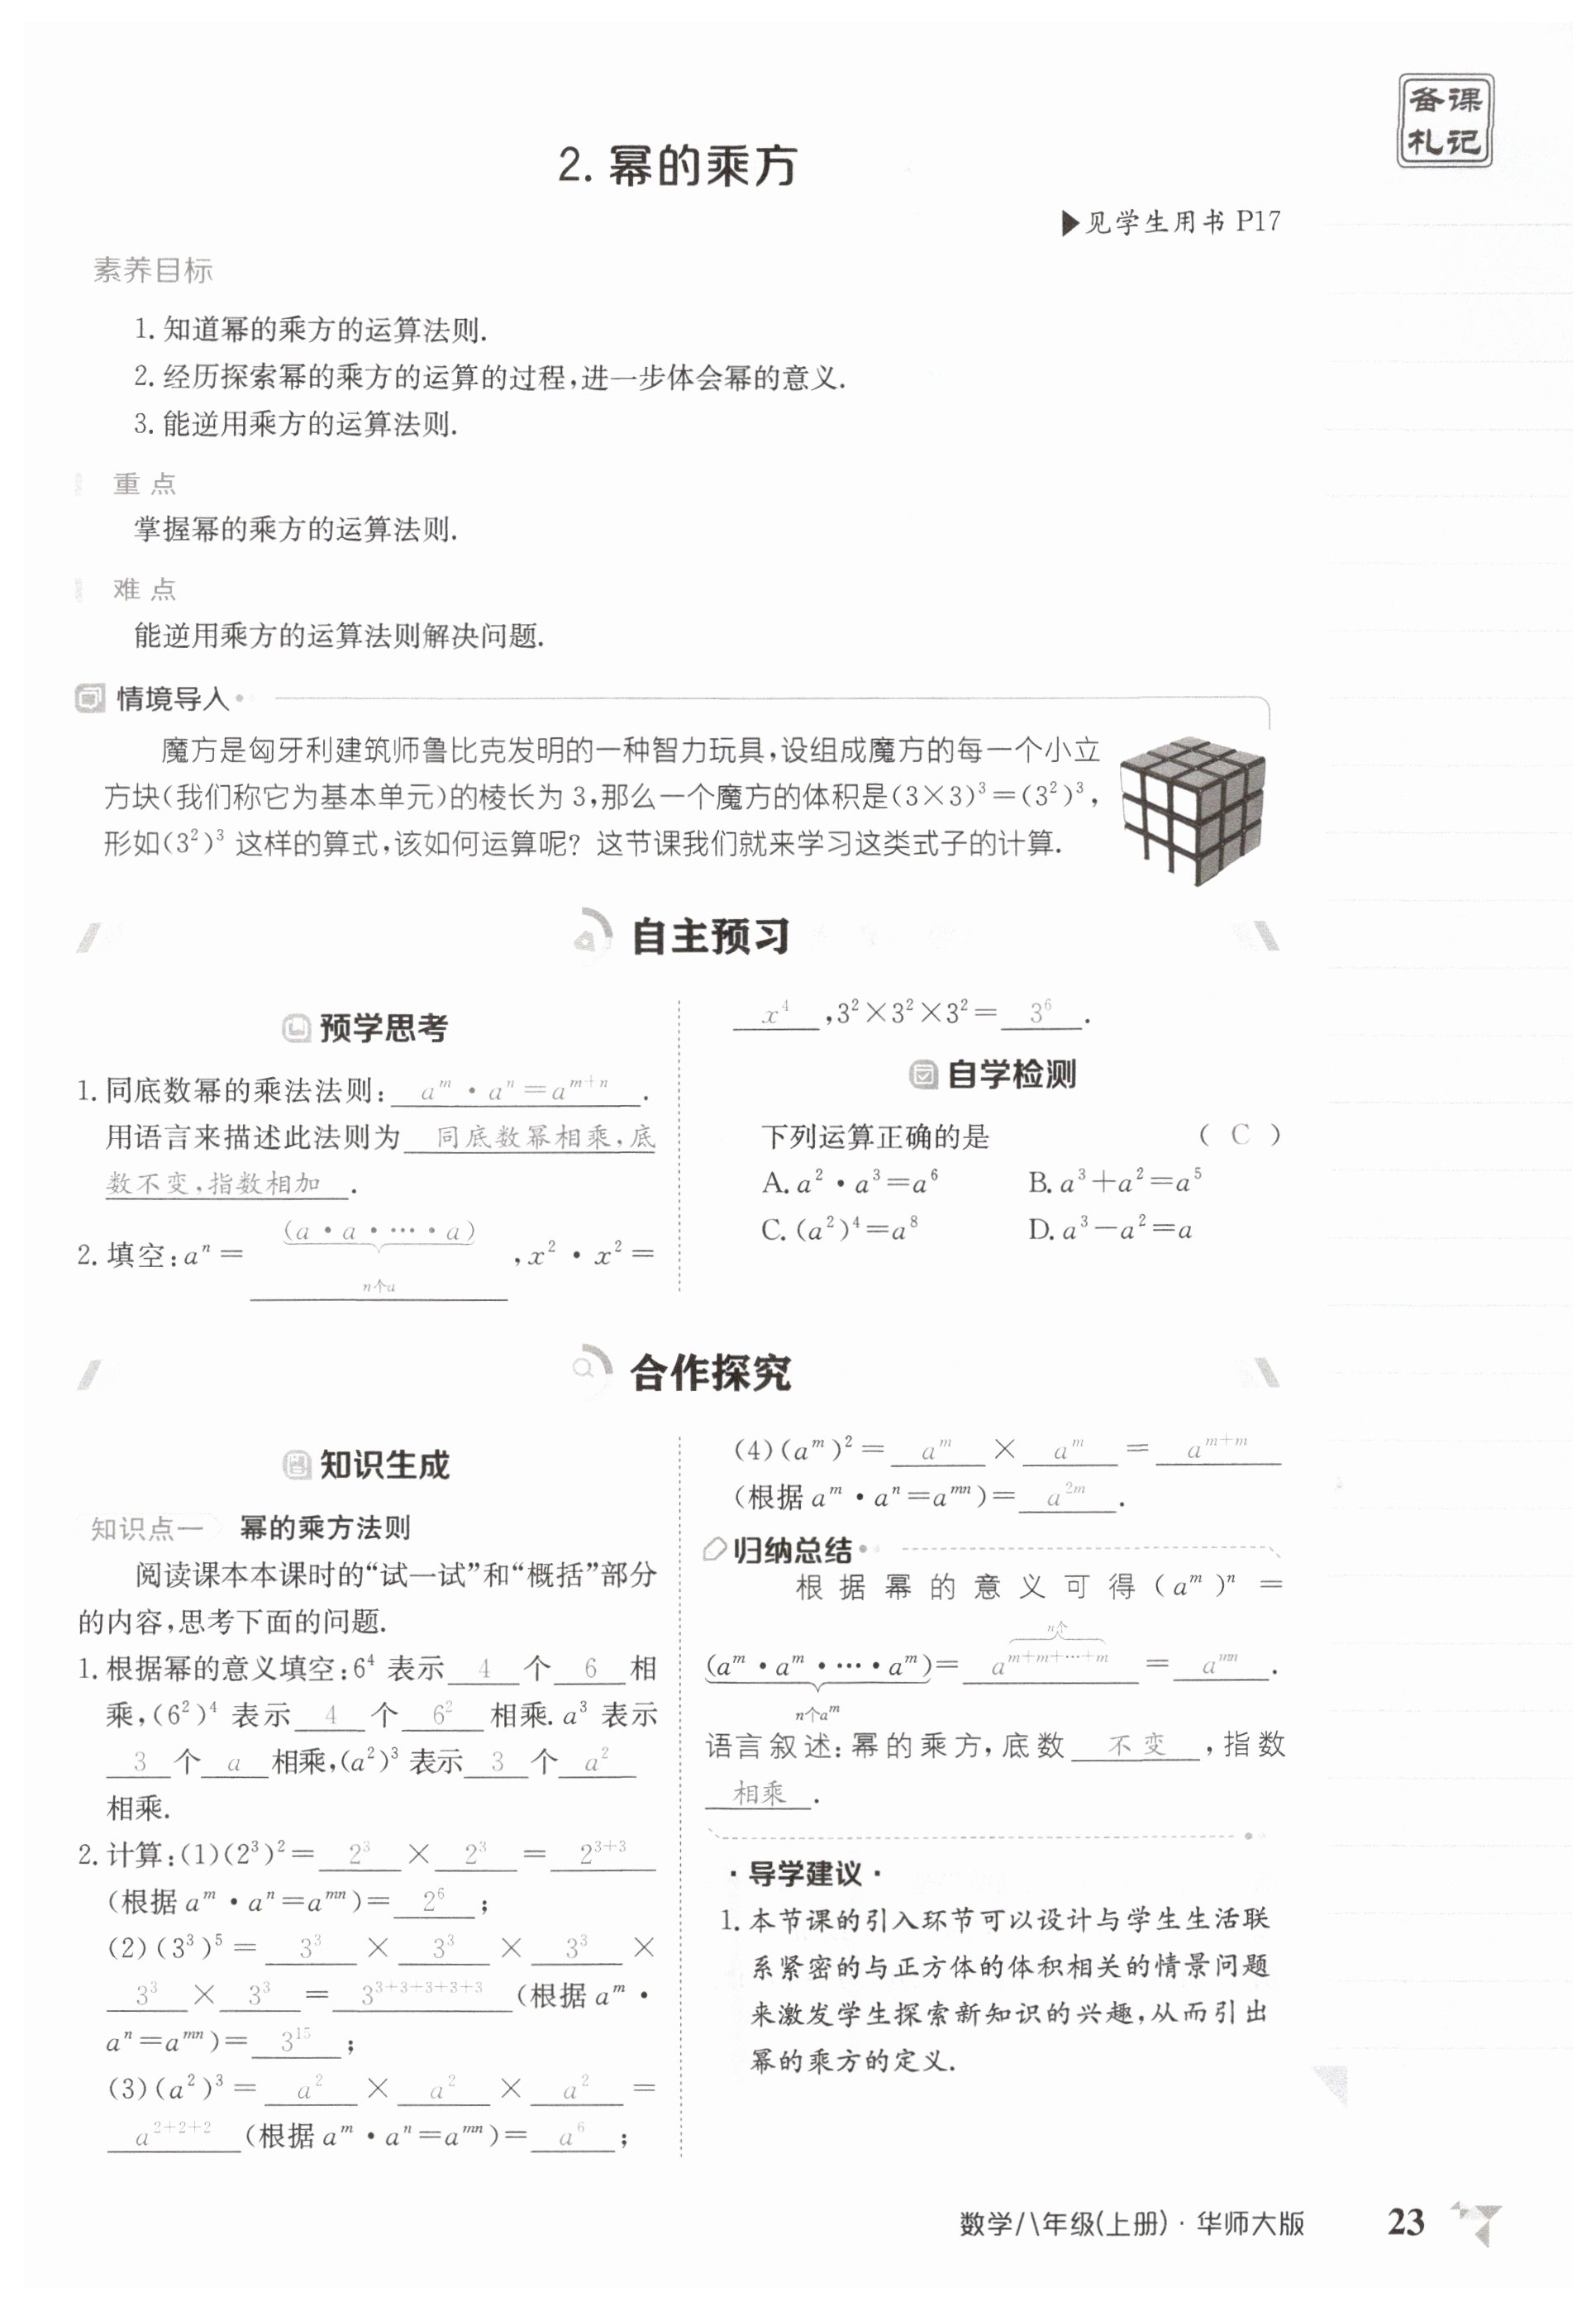 备课
札记
2. 幂的乘方
▶见学生用书 P17
素养目标
1. 知道幂的乘方的运算法则.
2. 经历探索幂的乘方的运算的过程,进一步体会幂的意义.
3. 能逆用乘方的运算法则.
重点
掌握幂的乘方的运算法则.
难点
能逆用乘方的运算法则解决问题.
情境导入
魔方是匈牙利建筑师鲁比克发明的一种智力玩具,设组成魔方的每一个小立
方块(我们称它为基本单元)的棱长为 3,那么一个魔方的体积是(3×3)³=(3²)³,
形如(3²)³ 这样的算式,该如何运算呢? 这节课我们就来学习这类式子的计算.
自主预习
预学思考
1. 同底数幂的乘法法则: aᵐ · aⁿ = aᵐ⁺ⁿ .
用语言来描述此法则为 同底数幂相乘,底
数不变,指数相加 .
2. 填空:aⁿ = (a · a · … · a) ,x² · x² =
n个a
x⁴ ,3²×3²×3²= 3⁶ .
自学检测
下列运算正确的是 ( C )
A. a² · a³=a⁶ B. a³+a²=a⁵
C. (a²)⁴=a⁸ D. a³-a²=a
合作探究
知识生成
知识点一 幂的乘方法则
阅读课本本课时的“试一试”和“概括”部分
的内容,思考下面的问题.
1. 根据幂的意义填空:6⁴ 表示 4 个 6 相
乘,(6²)⁴ 表示 4 个 6² 相乘. a³ 表示
3 个 a 相乘,(a²)³ 表示 3 个 a²
相乘.
2. 计算:(1)(2³)²= 2³ × 2³ = 2³⁺³
(根据 aᵐ · aⁿ=aᵐⁿ)= 2⁶ ;
(2)(3³)⁵= 3³ × 3³ × 3³ ×
3³ × 3³ = 3³⁺³⁺³⁺³⁺³ (根据 aᵐ ·
aⁿ=aᵐⁿ)= 3¹⁵ ;
(3)(a²)³= a² × a² × a² =
a²⁺²⁺² (根据 aᵐ · aⁿ=aᵐⁿ)= a⁶ ;
(4)(aᵐ)²= aᵐ × aᵐ = aᵐ⁺ᵐ
(根据 aᵐ · aⁿ=aᵐⁿ)= a²ᵐ .
归纳总结
根据幂的意义可得(aᵐ)ⁿ=
n个
(aᵐ · aᵐ · … · aᵐ)= aᵐ⁺ᵐ⁺…⁺ᵐ = aᵐⁿ .
n个aᵐ
语言叙述:幂的乘方,底数 不变 ,指数
相乘 .
· 导学建议 ·
1. 本节课的引入环节可以设计与学生生活联
系紧密的与正方体的体积相关的情景问题
来激发学生探索新知识的兴趣,从而引出
幂的乘方的定义.
数学/八年级(上册) · 华师大版 23